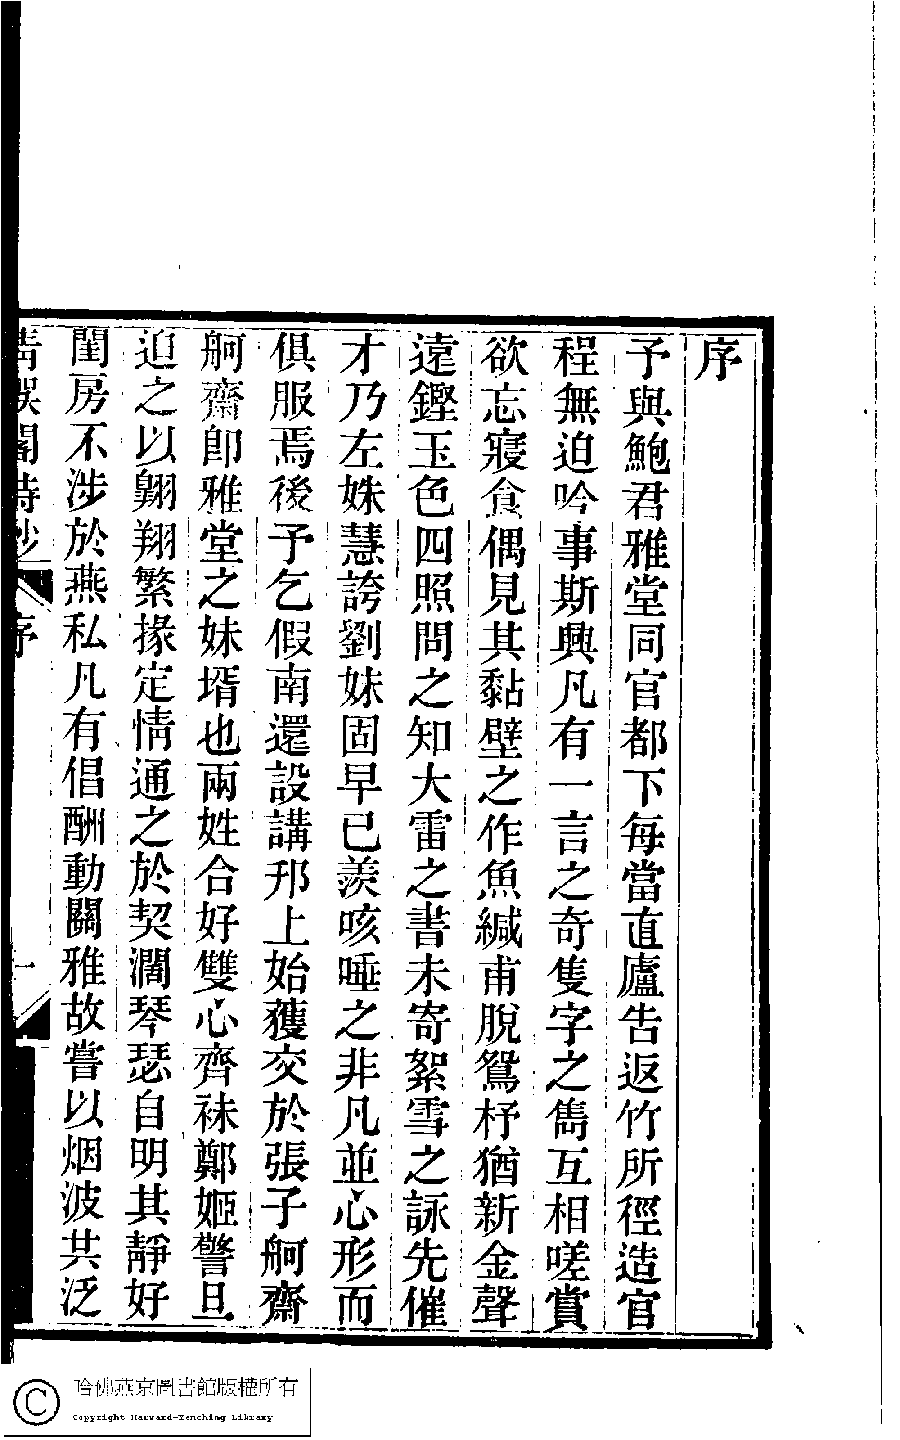 序
予與鮑君雅堂同官都下每當直廬告返竹所徑造官
程無迫吟事斯興凡有一言之奇隻字之雋互相嗟賞
欲忘寢食偶見其黏壁之作魚緘甫脫鴛杼猶新金聲
遠鏗玉色四照問之知大雷之書未寄絮雪之詠先催
才乃左姝慧誇劉妹固早已羨咳唾之非凡並心形而
俱服焉後予乞假南還設講邗上始獲交於張子舸齋
舸齋卽雅堂之妹壻也兩姓合好雙心齊袜鄭姬警旦
迫之以翺翔繁掾定情通之於契濶琴瑟自明其靜好
閨房不涉於燕私凡有倡酬動關雅故嘗以烟波共泛
閣詩鈔
序
一
哈佛燕京圖書館版權所有
Copyright Harvard-Yenching Library